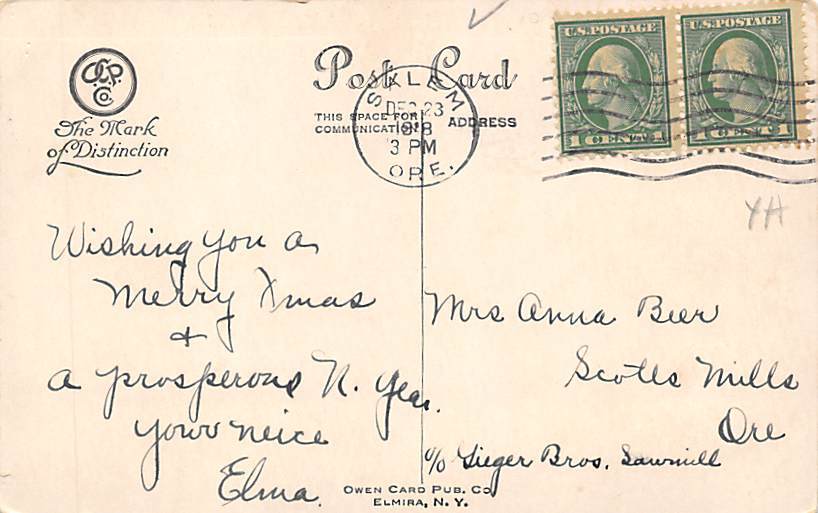 O.C.P. Co.
The Mark
of Distinction
Post Card
THIS SPACE FOR
COMMUNICATION
ADDRESS
SALEM
DEC 23
1918
3 PM
ORE.
U.S. POSTAGE
1 CENT 1
U.S. POSTAGE
1 CENT 1
YH
Wishing you a
Merry Xmas
+
a prosperous N. Year.
Your neice
Elma.
Mrs Anna Beer
Scotts Mills
Ore
c/o Gieger Bros. Sawmill
OWEN CARD PUB. CO
ELMIRA, N. Y.